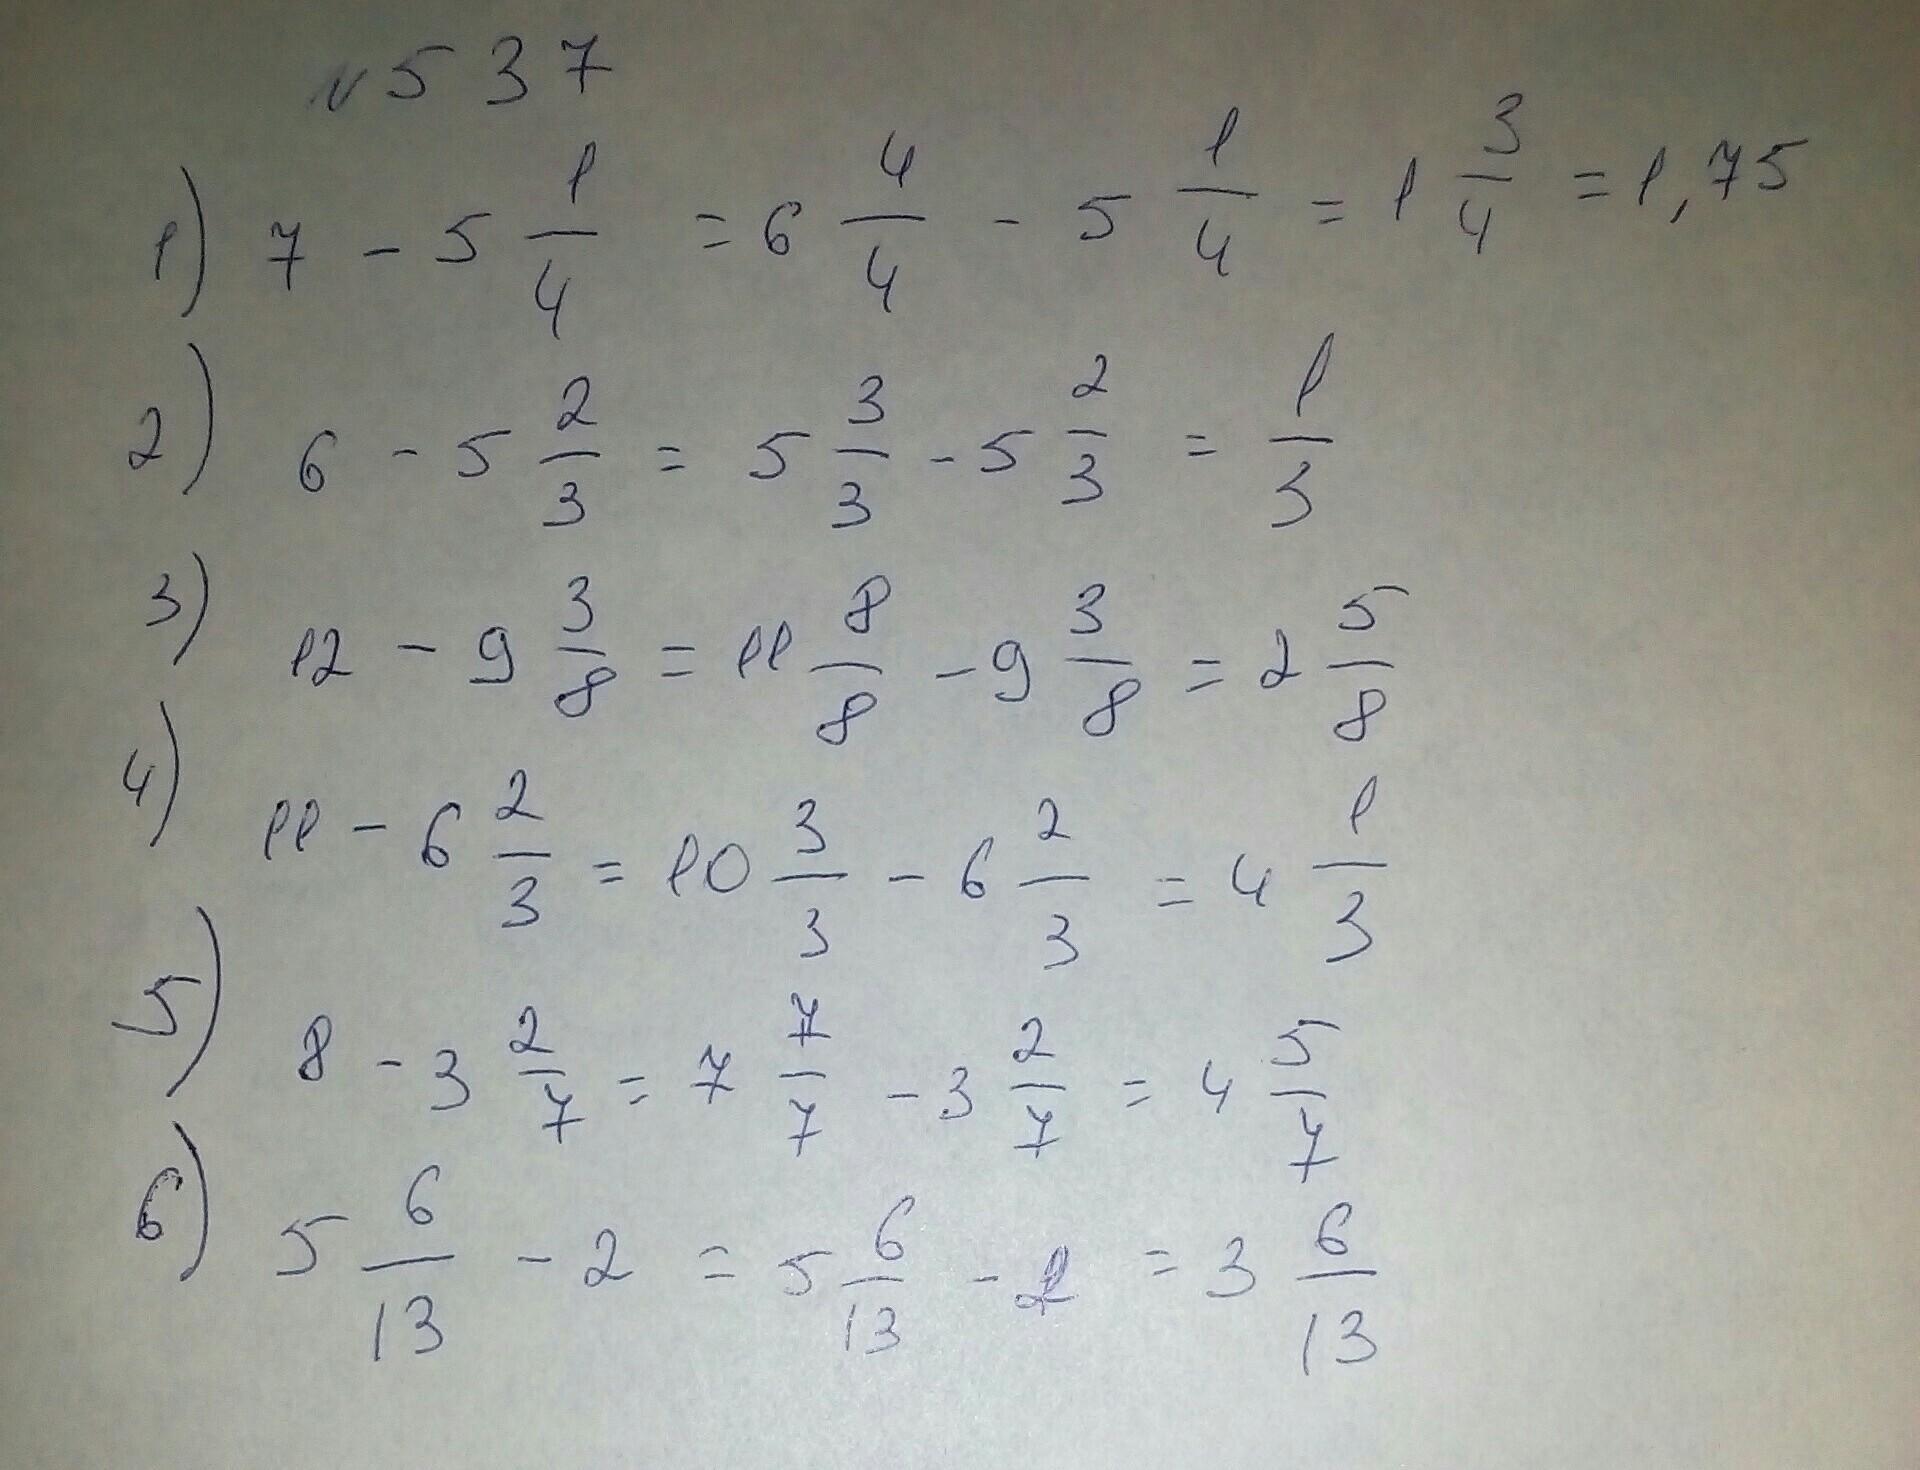 №537
1) 7 - 5 1/4 = 6 4/4 - 5 1/4 = 1 3/4 = 1,75
2) 6 - 5 2/3 = 5 3/3 - 5 2/3 = 1/3
3) 12 - 9 3/8 = 11 8/8 - 9 3/8 = 2 5/8
4) 11 - 6 2/3 = 10 3/3 - 6 2/3 = 4 1/3
5) 8 - 3 2/7 = 7 7/7 - 3 2/7 = 4 5/7
6) 5 6/13 - 2 = 5 6/13 - 2 = 3 6/13